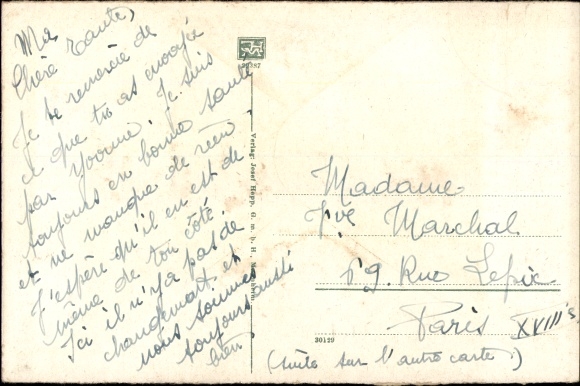 Ma
Chère Tante,
Je te remercie de
ce que tu as envoyé
par Yvonne. Je suis
toujours en bonne santé
et ne manque de rien
J'espère qu'il en est de
même de ton côté
Ici il n'y a pas de
changement et
nous sommes
toujours aussi
bien
Verlag: Josef Hopp, G. m. b. H.,
Madame
Vve Marchal
59. Rue Lepic
Paris XVIII e
30129
(suite sur l'autre carte.)